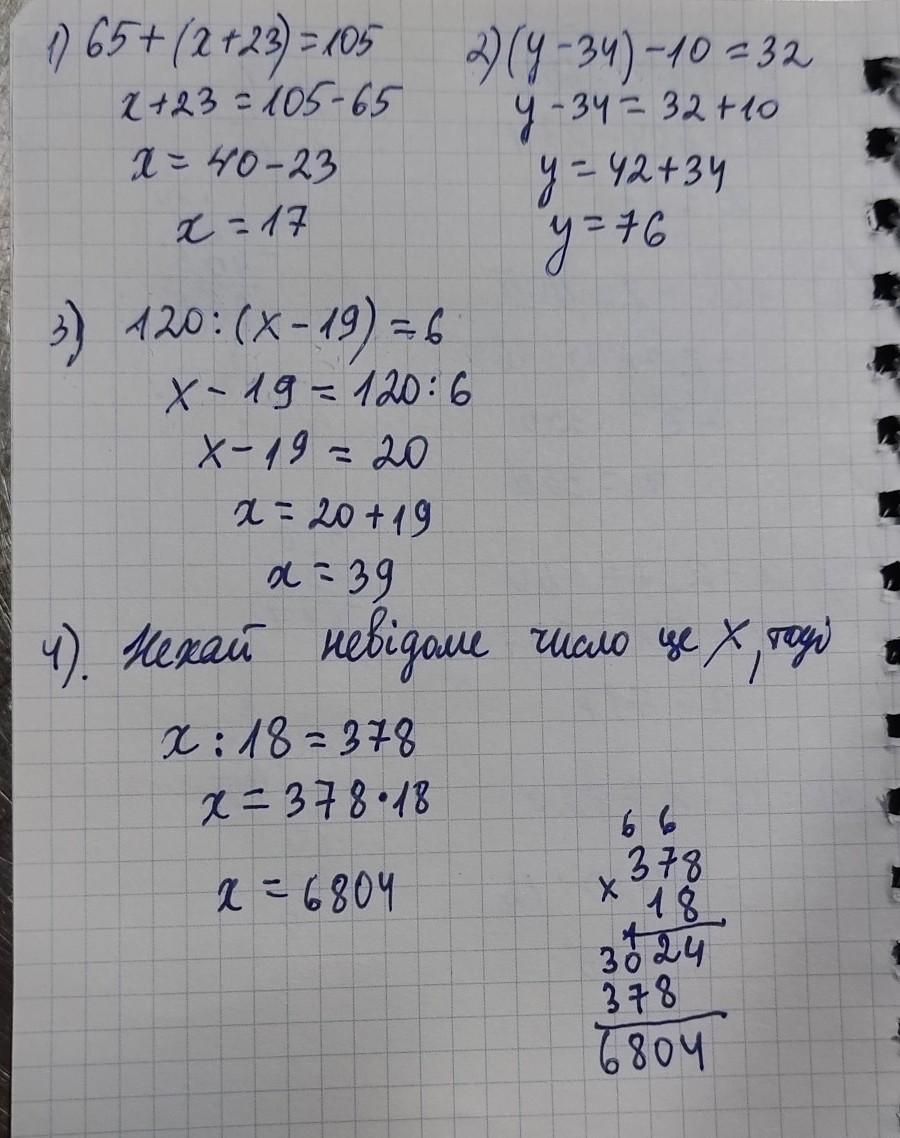 1) 65+(x+23)=105
x+23=105-65
x=40-23
x=17
2) (y-34)-10=32
y-34=32+10
y=42+34
y=76
3) 120:(x-19)=6
x-19=120:6
x-19=20
x=20+19
x=39
4). Нехай невідоме число це x, тоді
x:18=378
x=378·18
x=6804
6 6
378
x 18
1
3024
378
6804